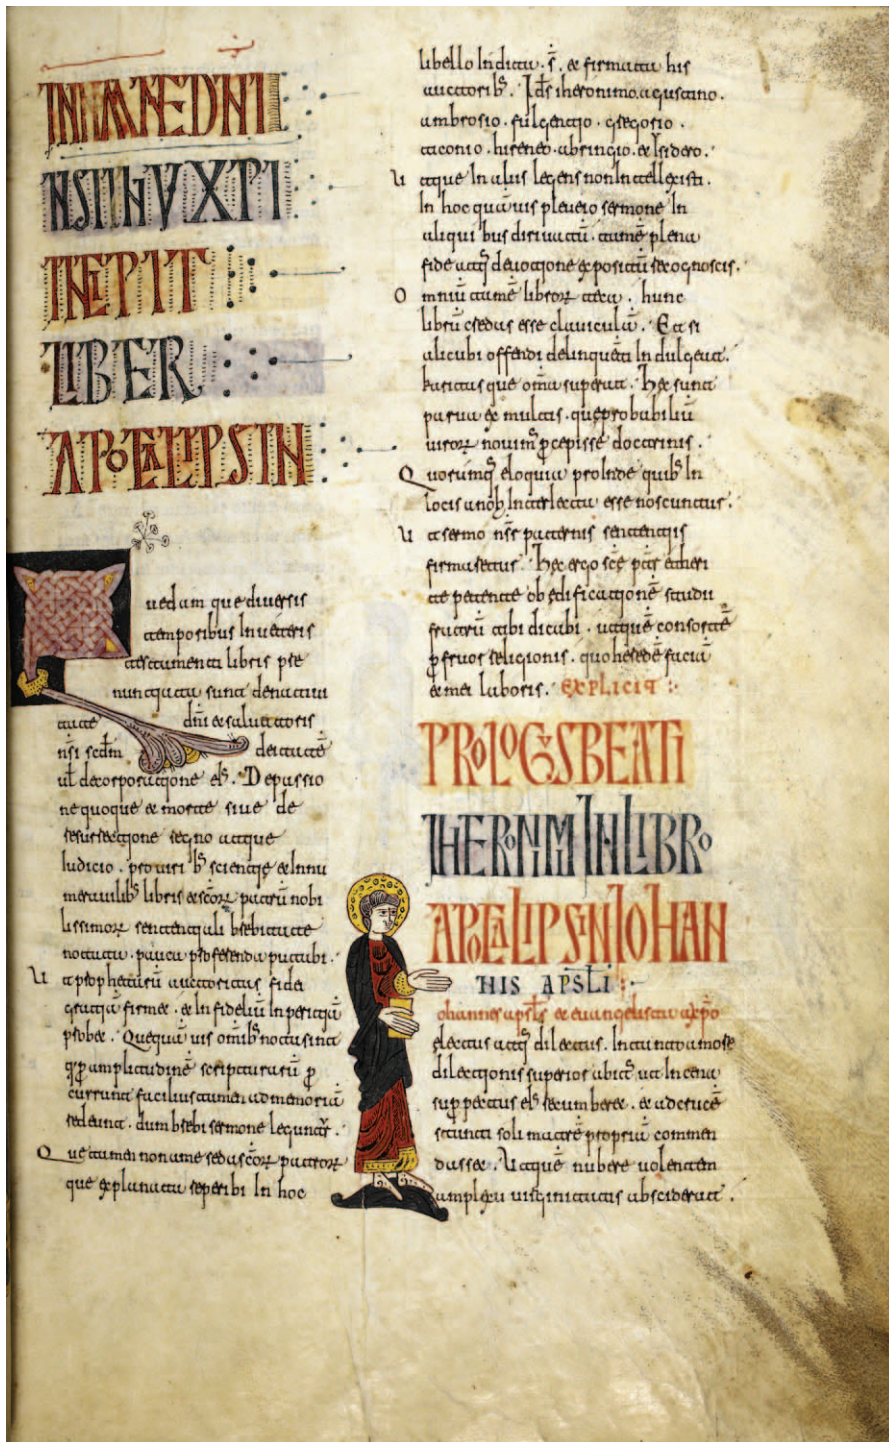 INNMNEDNI
NSIIHVXPI
INCIPIT
LIBER
APOCALIPSIN
Quedam que diuersis
temporibus In ueteris
testamenti libris pre
nuntiata sunt de natiui
tate dn̄i & saluatoris
n̄si scd̄m deitatē
ul̄ de corporatione eīs. De passio
ne quoque & morte siue de
resurrectione regno atque
Iudicio. pro uiri b̄ scientię & Innu
merauilib̄ libris & sc̄orꝝ patrū nobi
lissimorꝝ sententiali brebitate
notata. pauca proferenda putabi.
Ut prophetarū auctoritas fidei
gratiā firmet. & In fideliū Inperitiā
probet. Quequā uis om̄ib̄ nota sint
q̄ p̄ amplitudinē scripturarū p̄
currunt facilius tamen ad memoriā
redeunt. dum brebi sermone leguntr̄.
Que tamen non a me sed a sc̄orꝝ patrorꝝ
que explanata reperibi In hoc
libello Indita. s̄. & firmata his
auctorib̄. Id̄s iheronimo. agustino.
ambrosio. fulgentio. gregorio.
ticonio. hireneo. abringio. & Isidero.
Ut que In aliis legens non Intellexisti.
In hoc quā uis pleueio sermone In
aliqui bus diriuatū. tamē plena
fide atq̄ deuotione expositū recognoscis.
Omniū tamē librorꝝ teca. hunc
librū credas esse clauiculā. Et si
alicubi offendi delinquēti Indulgeat.
karitas que om̄a superat. Hec sunt
parua ex multis. que probabiliū
uirorꝝ nouim̄ p̄cepisse doctrinis.
Quorumq̄ eloquia proInde quib̄ In
locis a nob̄ Interlecta esse noscuntur.
Ut sermo nsr̄ paternis sententiis
firmaretur. Hec ergo sc̄e pat̄r etheri
te petente ob edificationē studii
fratrū tibi dicabi. ut quē consortē
p̄fruor religionis. quoheredē faciā
& mei laboris. EXPLICIT
PROLOGUS BEATI
IHERONIMI IN LIBRO
APOCALIPSIN IOHAN
NIS AP̄STLI
Iohannes apsts̄ & euangelista a xp̄o
electus atq̄ dilectus. In tanto amore
dilectionis superior abitr̄ ut In cena
supr pectus eīs recumberet. & ad crucē
stanti soli matrē propriā commen
dasset. Ut quē nubere uolentem
amplexu uirginitatis absciderat.